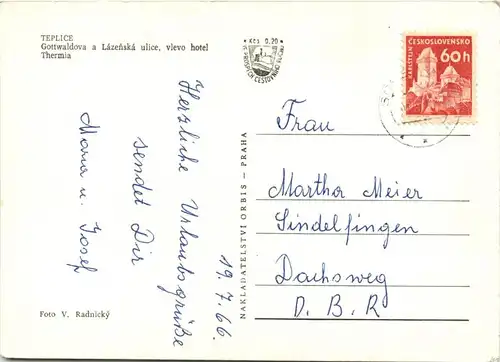 TEPLICE
Gottwaldova a Lázeňská ulice, vlevo hotel
Thermia
Kčs 0,20
VE PROSPĚCH CESTOVNÍHO RUCHU
ČESKOSLOVENSKO
60h
KARLŠTEJN
19.7.66.
Herzliche Urlaubsgrüße
sendet Dir
Maria u. Josef
NAKLADATELSTVÍ ORBIS - PRAHA
Frau
Martha Meier
Sindelfingen
Dachsweg
D. B. R
Foto V. Radnický